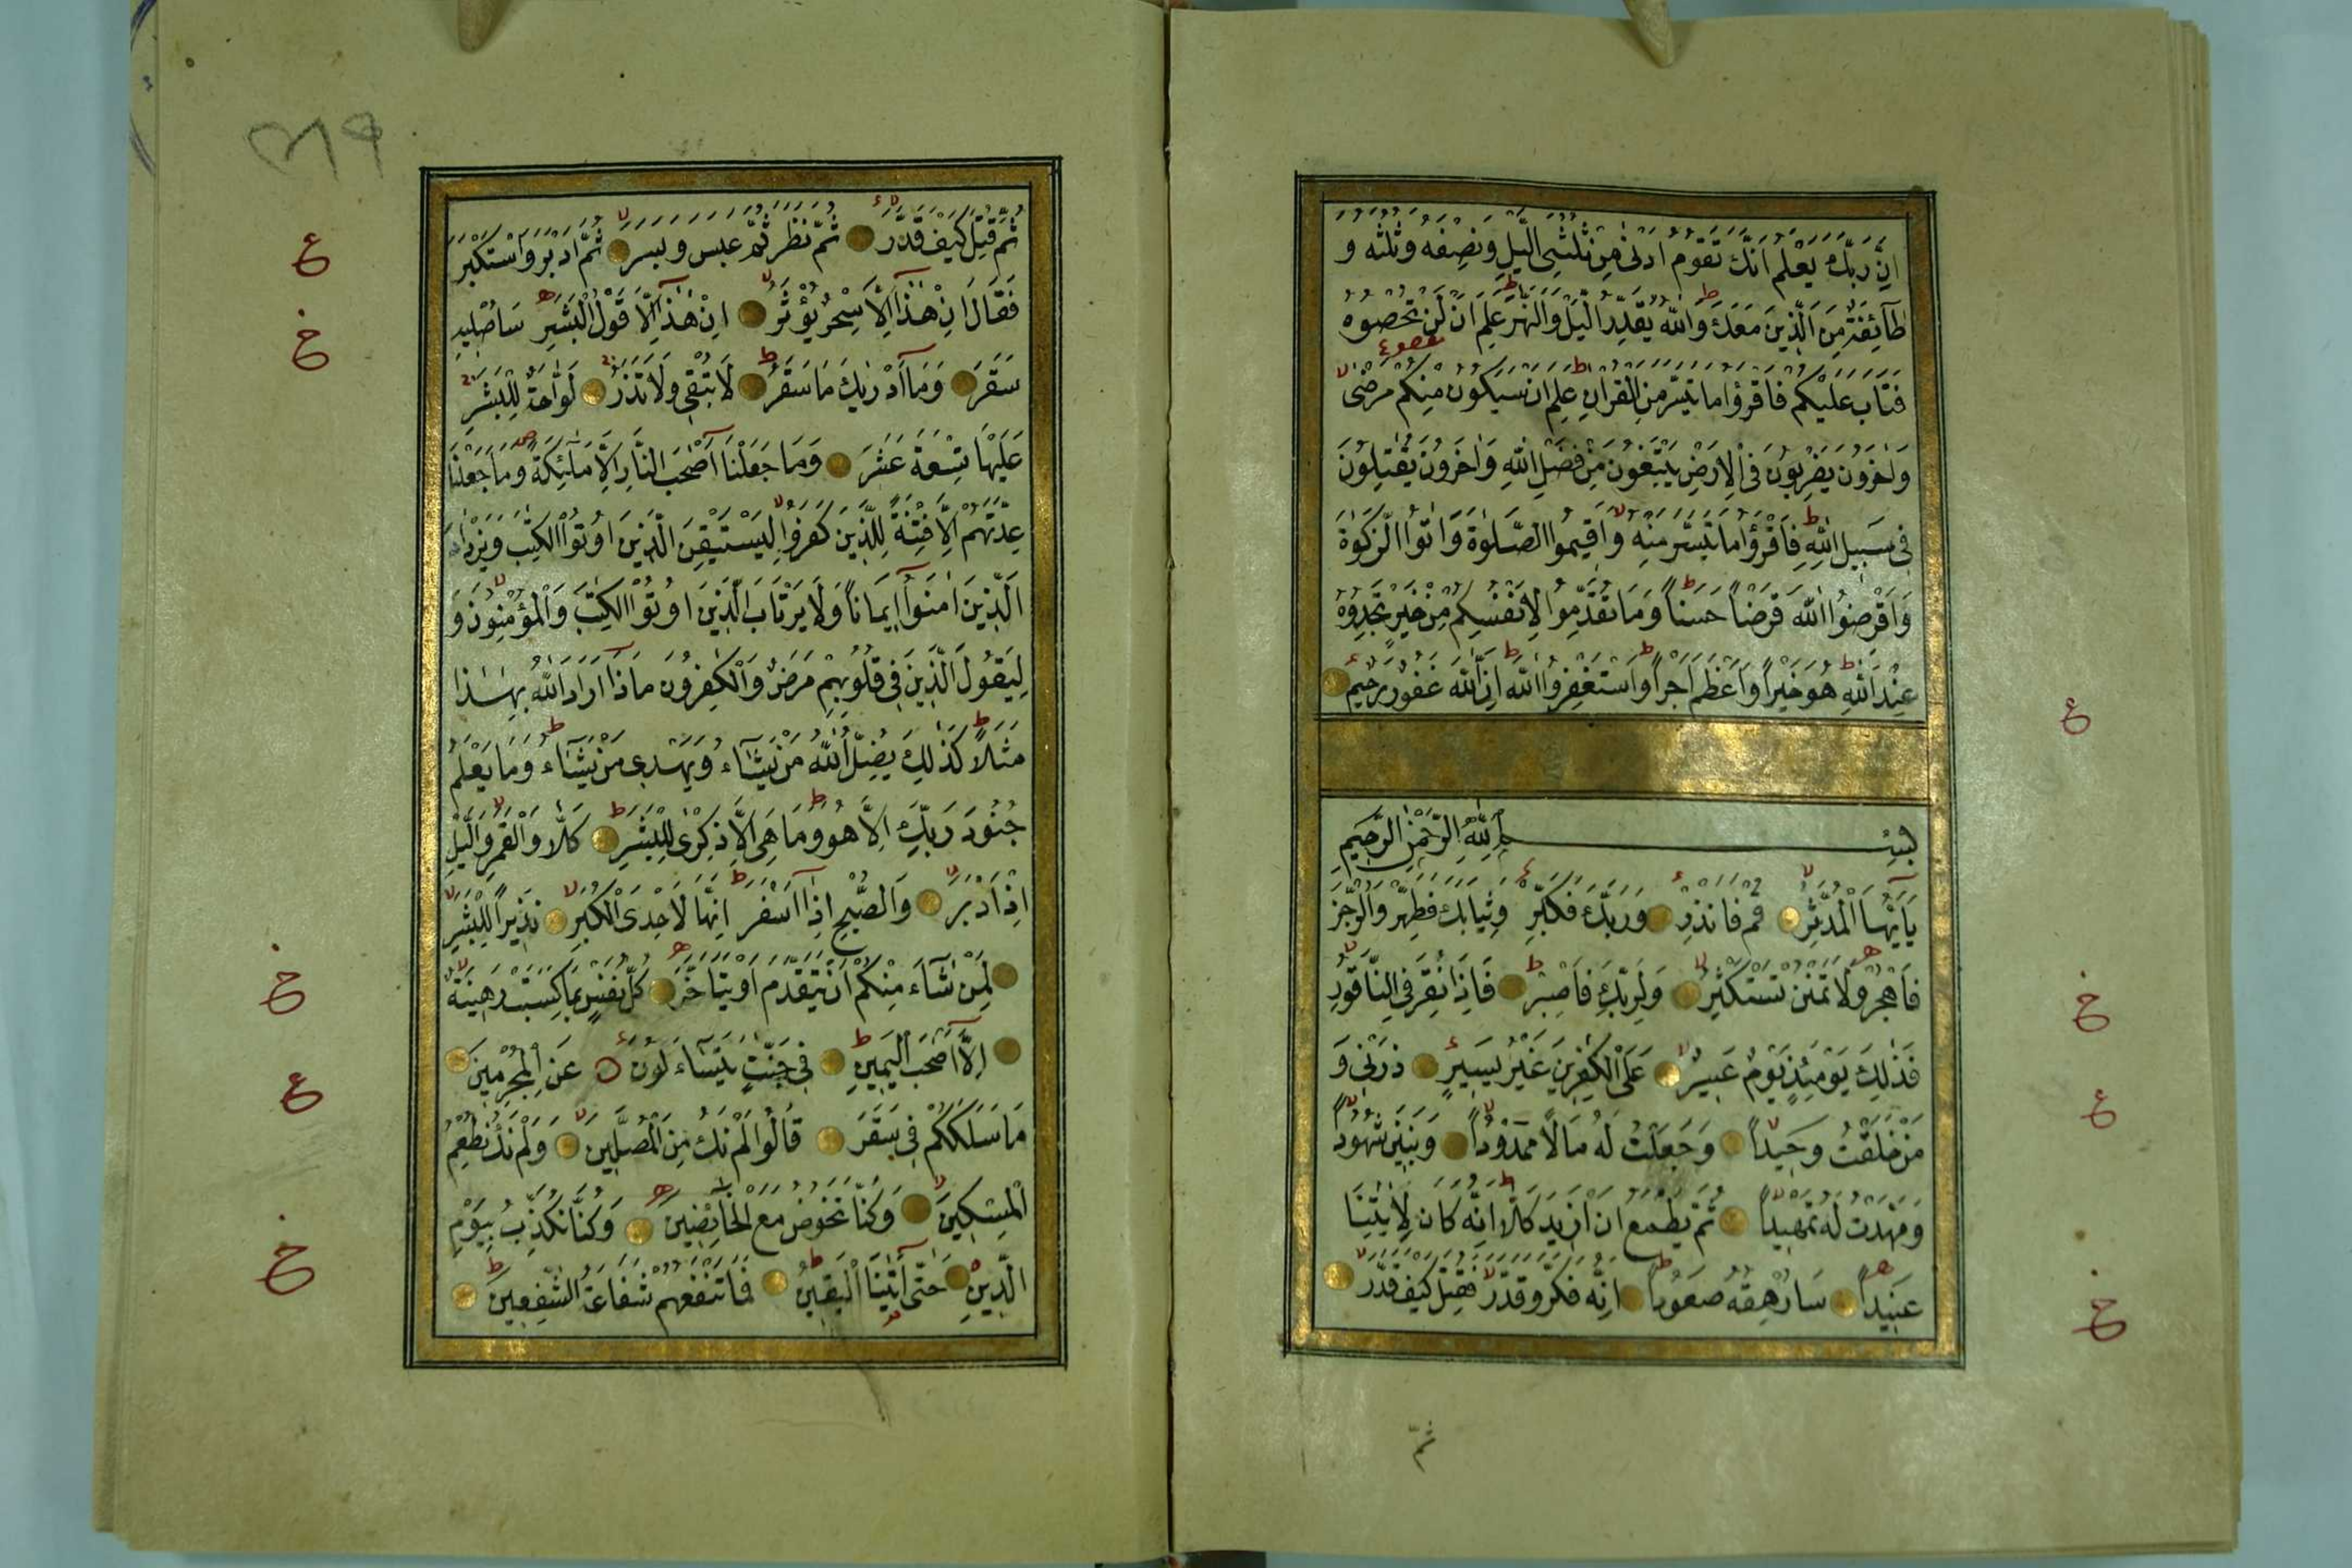 اِنَّ رَبَّكَ يَعْلَمُ اَنَّكَ تَقُومُ اَدْنٰى مِنْ ثُلُثَىِ الَّيْلِ وَنِصْفَهُ وَثُلُثَهُ وَ
طَآئِفَةٌ مِنَ الَّذِينَ مَعَكَ وَاللّٰهُ يُقَدِّرُ الَّيْلَ وَالنَّهٰرَ عَلِمَ اَنْ لَنْ تُحْصُوهُ
فَتَابَ عَلَيْكُمْ فَاقْرَؤُا مَا تَيَسَّرَ مِنَ الْقُرْاٰنِ عَلِمَ اَنْ سَيَكُونُ مِنْكُمْ مَرْضٰى
وَاٰخَرُونَ يَضْرِبُونَ فِى الْاَرْضِ يَبْتَغُونَ مِنْ فَضْلِ اللّٰهِ وَاٰخَرُونَ يُقٰتِلُونَ
فِى سَبِيلِ اللّٰهِ فَاقْرَؤُا مَا تَيَسَّرَ مِنْهُ وَاَقِيمُوا الصَّلٰوةَ وَاٰتُوا الزَّكٰوةَ
وَاَقْرِضُوا اللّٰهَ قَرْضاً حَسَناً وَمَا تُقَدِّمُوا لِاَنْفُسِكُمْ مِنْ خَيْرٍ تَجِدُوهُ
عِنْدَ اللّٰهِ هُوَ خَيْراً وَاَعْظَمَ اَجْراً وَاسْتَغْفِرُوا اللّٰهَ اِنَّ اللّٰهَ غَفُورٌ رَحِيمٌ
بِسْمِ اللّٰهِ الرَّحْمٰنِ الرَّحِيمِ
يَآاَيُّهَا الْمُدَّثِّرُ قُمْ فَاَنْذِرْ وَرَبَّكَ فَكَبِّرْ وَثِيَابَكَ فَطَهِّرْ وَالرُّجْزَ
فَاهْجُرْ وَلَا تَمْنُنْ تَسْتَكْثِرُ وَلِرَبِّكَ فَاصْبِرْ فَاِذَا نُقِرَ فِى النَّاقُورِ
فَذٰلِكَ يَوْمَئِذٍ يَوْمٌ عَسِيرٌ عَلَى الْكٰفِرِينَ غَيْرُ يَسِيرٍ ذَرْنِى وَ
مَنْ خَلَقْتُ وَحِيداً وَجَعَلْتُ لَهُ مَالًا مَمْدُوداً وَبَنِينَ شُهُوداً
وَمَهَّدْتُ لَهُ تَمْهِيداً ثُمَّ يَطْمَعُ اَنْ اَزِيدَ كَلَّا اِنَّهُ كَانَ لِاٰيٰتِنَا
عَنِيداً سَاُرْهِقُهُ صَعُوداً اِنَّهُ فَكَّرَ وَقَدَّرَ فَقُتِلَ كَيْفَ قَدَّرَ
ثم
٣١٩
ثُمَّ قُتِلَ كَيْفَ قَدَّرَ ثُمَّ نَظَرَ ثُمَّ عَبَسَ وَبَسَرَ ثُمَّ اَدْبَرَ وَاسْتَكْبَرَ
فَقَالَ اِنْ هٰذَآ اِلَّا سِحْرٌ يُؤْثَرُ اِنْ هٰذَآ اِلَّا قَوْلُ الْبَشَرِ سَاُصْلِيهِ
سَقَرَ وَمَآ اَدْرٰيكَ مَا سَقَرُ لَا تُبْقِى وَلَا تَذَرُ لَوَّاحَةٌ لِلْبَشَرِ
عَلَيْهَا تِسْعَةَ عَشَرَ وَمَا جَعَلْنَآ اَصْحٰبَ النَّارِ اِلَّا مَلٰٓئِكَةً وَمَا جَعَلْنَا
عِدَّتَهُمْ اِلَّا فِتْنَةً لِلَّذِينَ كَفَرُوا لِيَسْتَيْقِنَ الَّذِينَ اُوتُوا الْكِتٰبَ وَيَزْدَادَ
الَّذِينَ اٰمَنُوآ اِيمَاناً وَلَا يَرْتَابَ الَّذِينَ اُوتُوا الْكِتٰبَ وَالْمُؤْمِنُونَ وَ
لِيَقُولَ الَّذِينَ فِى قُلُوبِهِمْ مَرَضٌ وَالْكٰفِرُونَ مَاذَآ اَرَادَ اللّٰهُ بِهٰذَا
مَثَلًا كَذٰلِكَ يُضِلُّ اللّٰهُ مَنْ يَشَآءُ وَيَهْدِى مَنْ يَشَآءُ وَمَا يَعْلَمُ
جُنُودَ رَبِّكَ اِلَّا هُوَ وَمَا هِىَ اِلَّا ذِكْرٰى لِلْبَشَرِ كَلَّا وَالْقَمَرِ وَالَّيْلِ
اِذْ اَدْبَرَ وَالصُّبْحِ اِذَآ اَسْفَرَ اِنَّهَا لَاِحْدَى الْكُبَرِ نَذِيراً لِلْبَشَرِ
لِمَنْ شَآءَ مِنْكُمْ اَنْ يَتَقَدَّمَ اَوْ يَتَاَخَّرَ كُلُّ نَفْسٍ بِمَا كَسَبَتْ رَهِينَةٌ
اِلَّآ اَصْحٰبَ الْيَمِينِ فِى جَنّٰتٍ يَتَسَآءَلُونَ عَنِ الْمُجْرِمِينَ
مَا سَلَكَكُمْ فِى سَقَرَ قَالُوا لَمْ نَكُ مِنَ الْمُصَلِّينَ وَلَمْ نَكُ نُطْعِمُ
الْمِسْكِينَ وَكُنَّا نَخُوضُ مَعَ الْخَآئِضِينَ وَكُنَّا نُكَذِّبُ بِيَوْمِ
الدِّينِ حَتّٰىٓ اَتٰينَا الْيَقِينُ فَمَا تَنْفَعُهُمْ شَفَاعَةُ الشّٰفِعِينَ